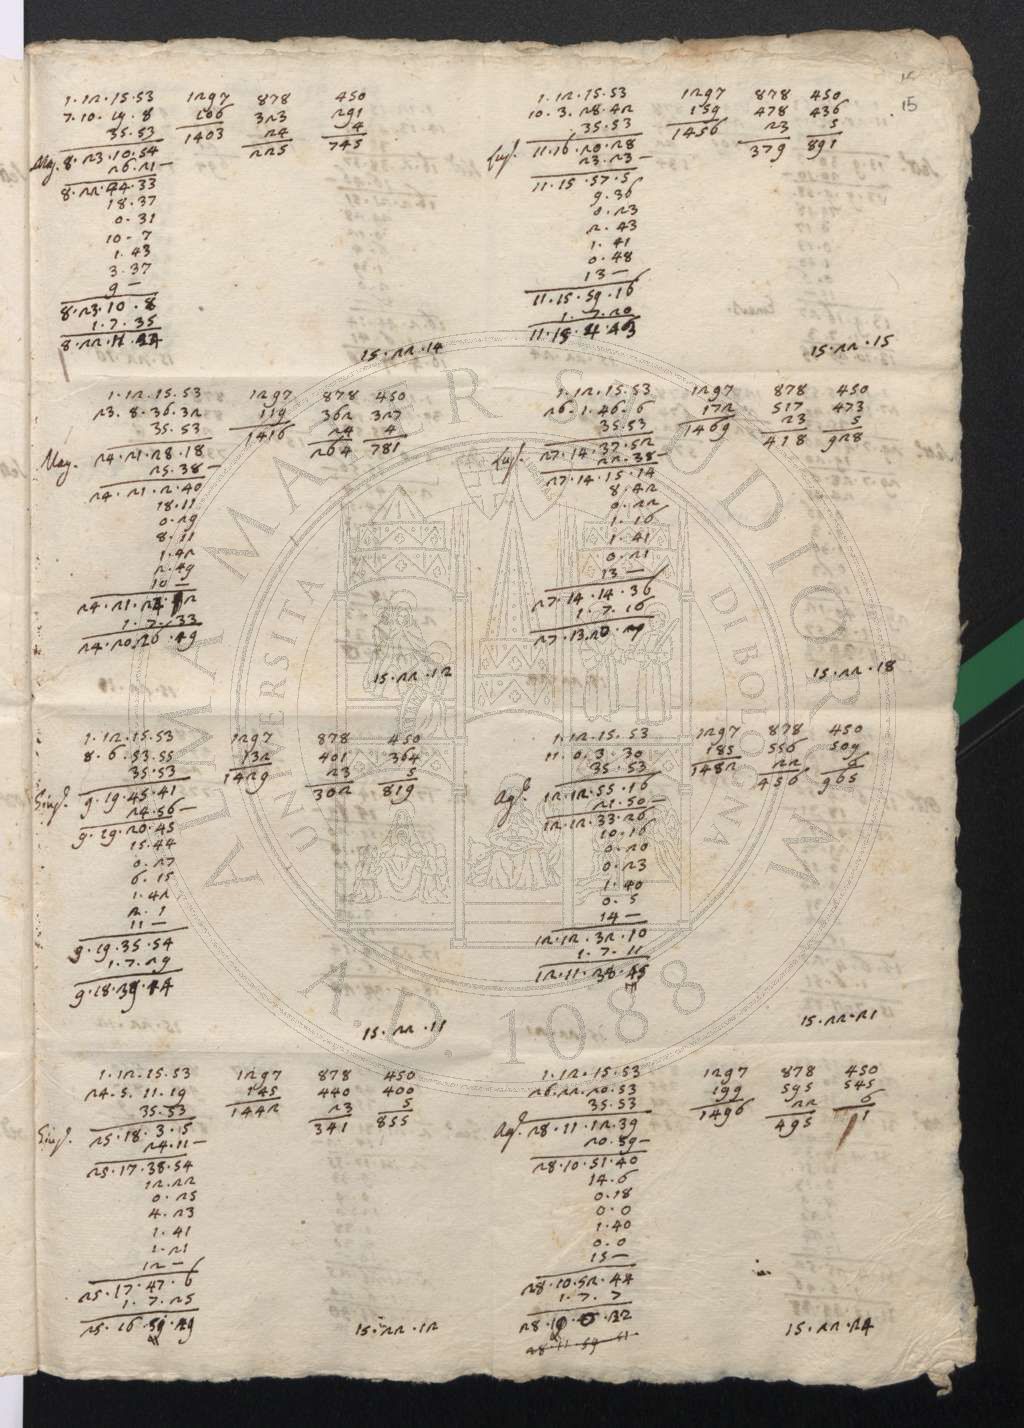 15
15
1.12.15.53 1297 878 450
7.10.19.8 106 323 291
35.53 1403 24 4
Mag. 8.23.10.54 225 745
26.21 —
8.22.44.33
18.37
0.31
10.7
1.43
3.37
9 —
8.23.10.8
1.7.35
15.22.14
1.12.15.53 1297 878 450
23.8.36.32 119 362 327
35.53 1416 24 4
Mag. 24.21.28.18 264 781
25.38 —
24.21.2.40
18.11
0.29
8.11
1.42
2.49
10 —
1.7.33
15.22.12
1.12.15.53 1297 878 450
8.6.53.55 132 401 364
35.53 1429 23 5
Giug. 9.19.45.41 302 819
24.56 —
9.19.20.45
15.44
0.27
6.15
1.42
2.1
11 —
9.19.35.54
1.7.29
15.22.11
1.12.15.53 1297 878 450
24.5.11.19 145 440 400
35.53 1442 23 5
Giug. 25.18.3.15 341 855
24.11 —
25.17.38.54
12.22
0.25
4.23
1.41
1.21
12 —
25.17.47.6
1.7.25
15.22.12
1.12.15.53 1297 878 450
10.3.28.42 159 478 436
35.53 1456 23 5
Lug. 11.16.20.28 379 891
23.23 —
11.15.57.5
9.36
0.23
2.43
1.41
0.48
13 —
11.15.59.16
1.7.20
15.22.15
1.12.15.53 1297 878 450
26.1.46.6 172 517 473
35.53 1469 23 5
Lug. 27.14.37.52 418 928
22.38 —
27.14.15.14
8.42
0.22
1.16
1.41
0.21
13 —
27.14.14.36
1.7.16
27.13.20.29
15.22.18
1.12.15.53 1297 878 450
11.0.3.30 185 556 509
35.53 1482 22 6
Ag. 12.12.55.16 456 965
21.50 —
12.12.33.26
10.16
0.20
0.23
1.40
0.5
14 —
12.12.32.10
1.7.11
15.22.21
1.12.15.53 1297 878 450
26.22.20.53 199 595 545
35.53 1496 22 6
Ag. 28.11.12.39 495 1
20.59 —
28.10.51.40
14.6
0.18
0.0
1.40
0.0
15 —
28.10.52.44
1.7.7
15.22.24
ALMA MATER STUDIORUM
UNIVERSITÀ DI BOLOGNA
A.D. 1088